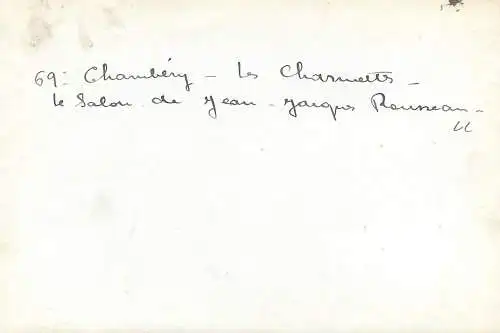 69: Chambéry - les Charmettes -
le Salon de Jean-Jacques Rousseau -
LL